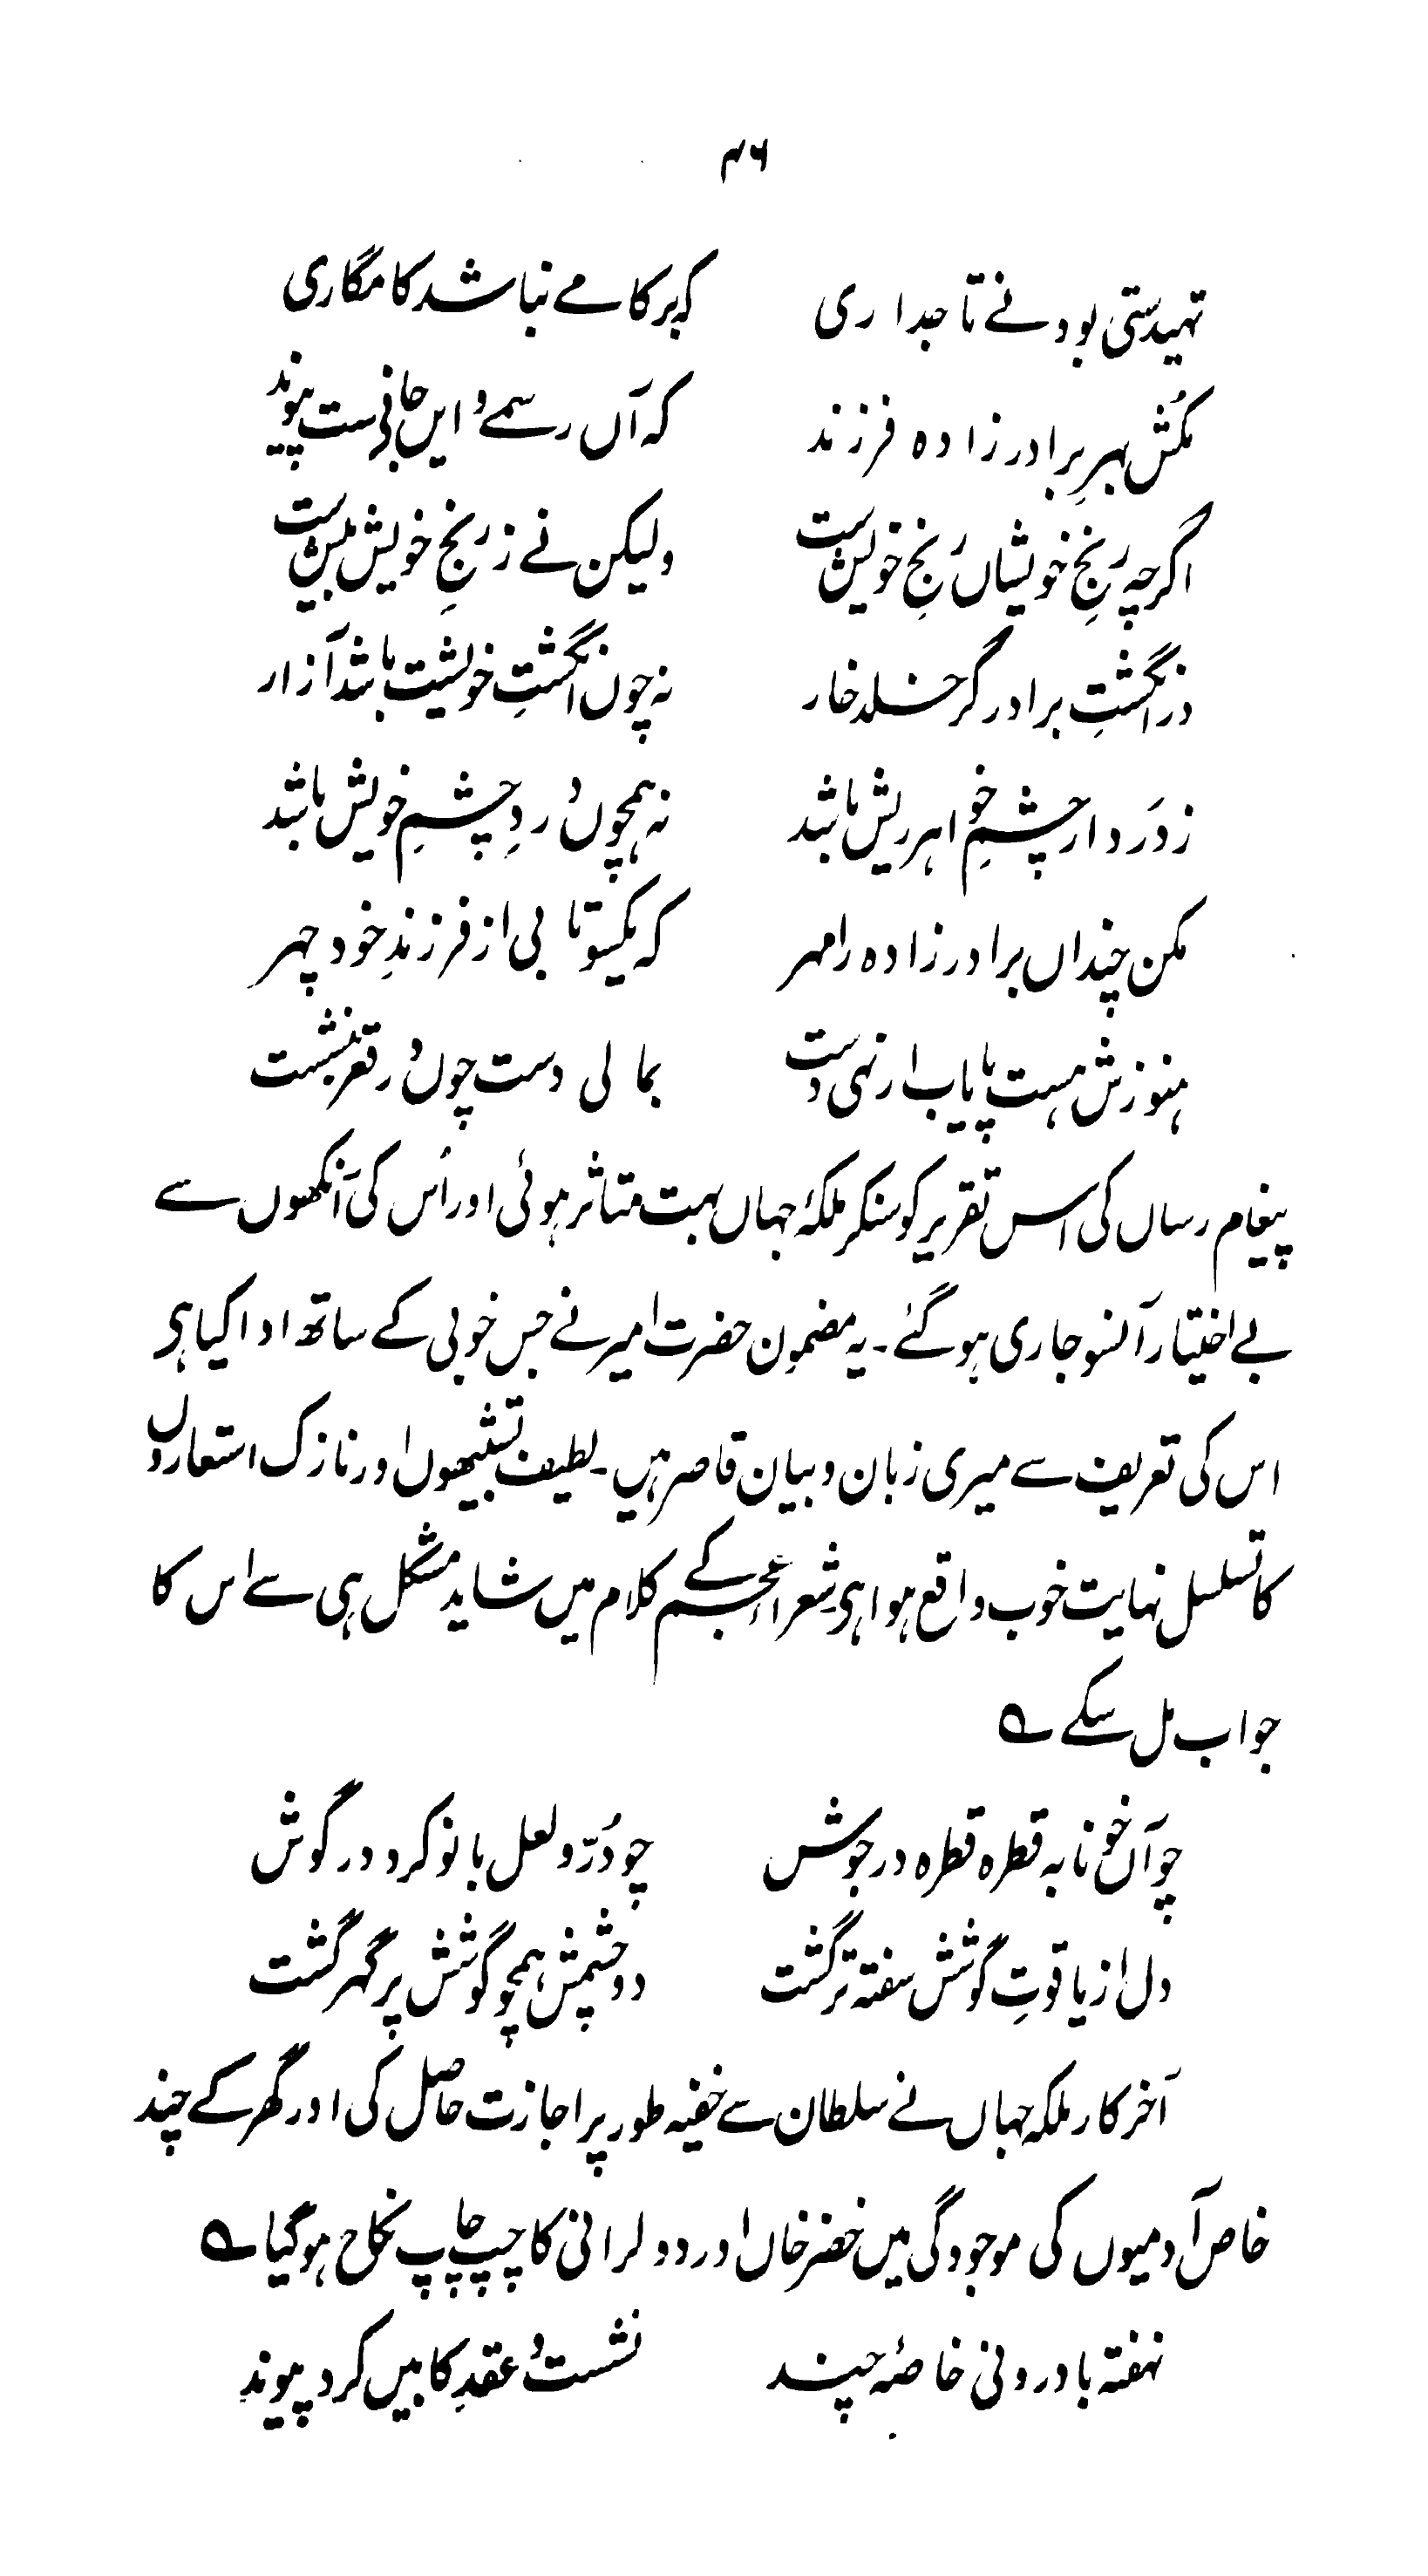 ۴۶
تہیدستی بود نے تاجداری کہ بر کامے نباشد کامگاری
مکُش بہرِ برادر زادہ فرزند کہ آں رسمے و ایں جانیست پیوند
اگرچہ رَنجِ خویشاں رَنجِ خویش ست ولیکن نے ز رَنجِ خویش بیش ست
در انگشتِ برادر گر خسلد خار نہ چوں انگشتِ خویشت باشد آزار
ز دَرد ار چشمِ خواہر ریش باشد نہ ہمچوں دردِ چشمِ خویش باشد
مکن چنداں برادر زادہ را مہر کہ یکسو تابی از فرزندِ خود چہر
ہنوزش ہست پایاب ار نہی دست بمالی دست چوں دُر قعر بنشست
پیغام رساں کی اس تقریر کو سنکر ملکۂ جہاں بہت متاثر ہوئی اور اُس کی آنکھوں سے
بے اختیار آنسو جاری ہو گئے۔ یہ مضمون حضرت امیر نے جس خوبی کے ساتھ ادا کیا ہی
اس کی تعریف سے میری زبان و بیان قاصر ہیں۔ لطیف تشبیھوں اور نازک استعاروں
کا تسلسل نہایت خوب واقع ہوا ہی۔ شعراءِ عجم کے کلام میں شاید مشکل ہی سے اس کا
جواب مل سکے ؎
چو آں خونابہ قطرہ قطرہ در جوش چو دُرّ و لعل بانو کرد در گوش
دل از یاقوتِ گوشش سفتہ تر گشت دو چشمش ہمچو گوشش پر گہر گشت
آخر کار ملکہ جہاں نے سلطان سے خفیہ طور پر اجازت حاصل کی اور گھر کے چند
خاص آدمیوں کی موجودگی میں خضر خاں اور دولرانی کا چپ چاپ نکاح ہو گیا ؎
نہفتہ با درونی خاصۂ چند نشست و عقدِ کابیں کرد پیوند